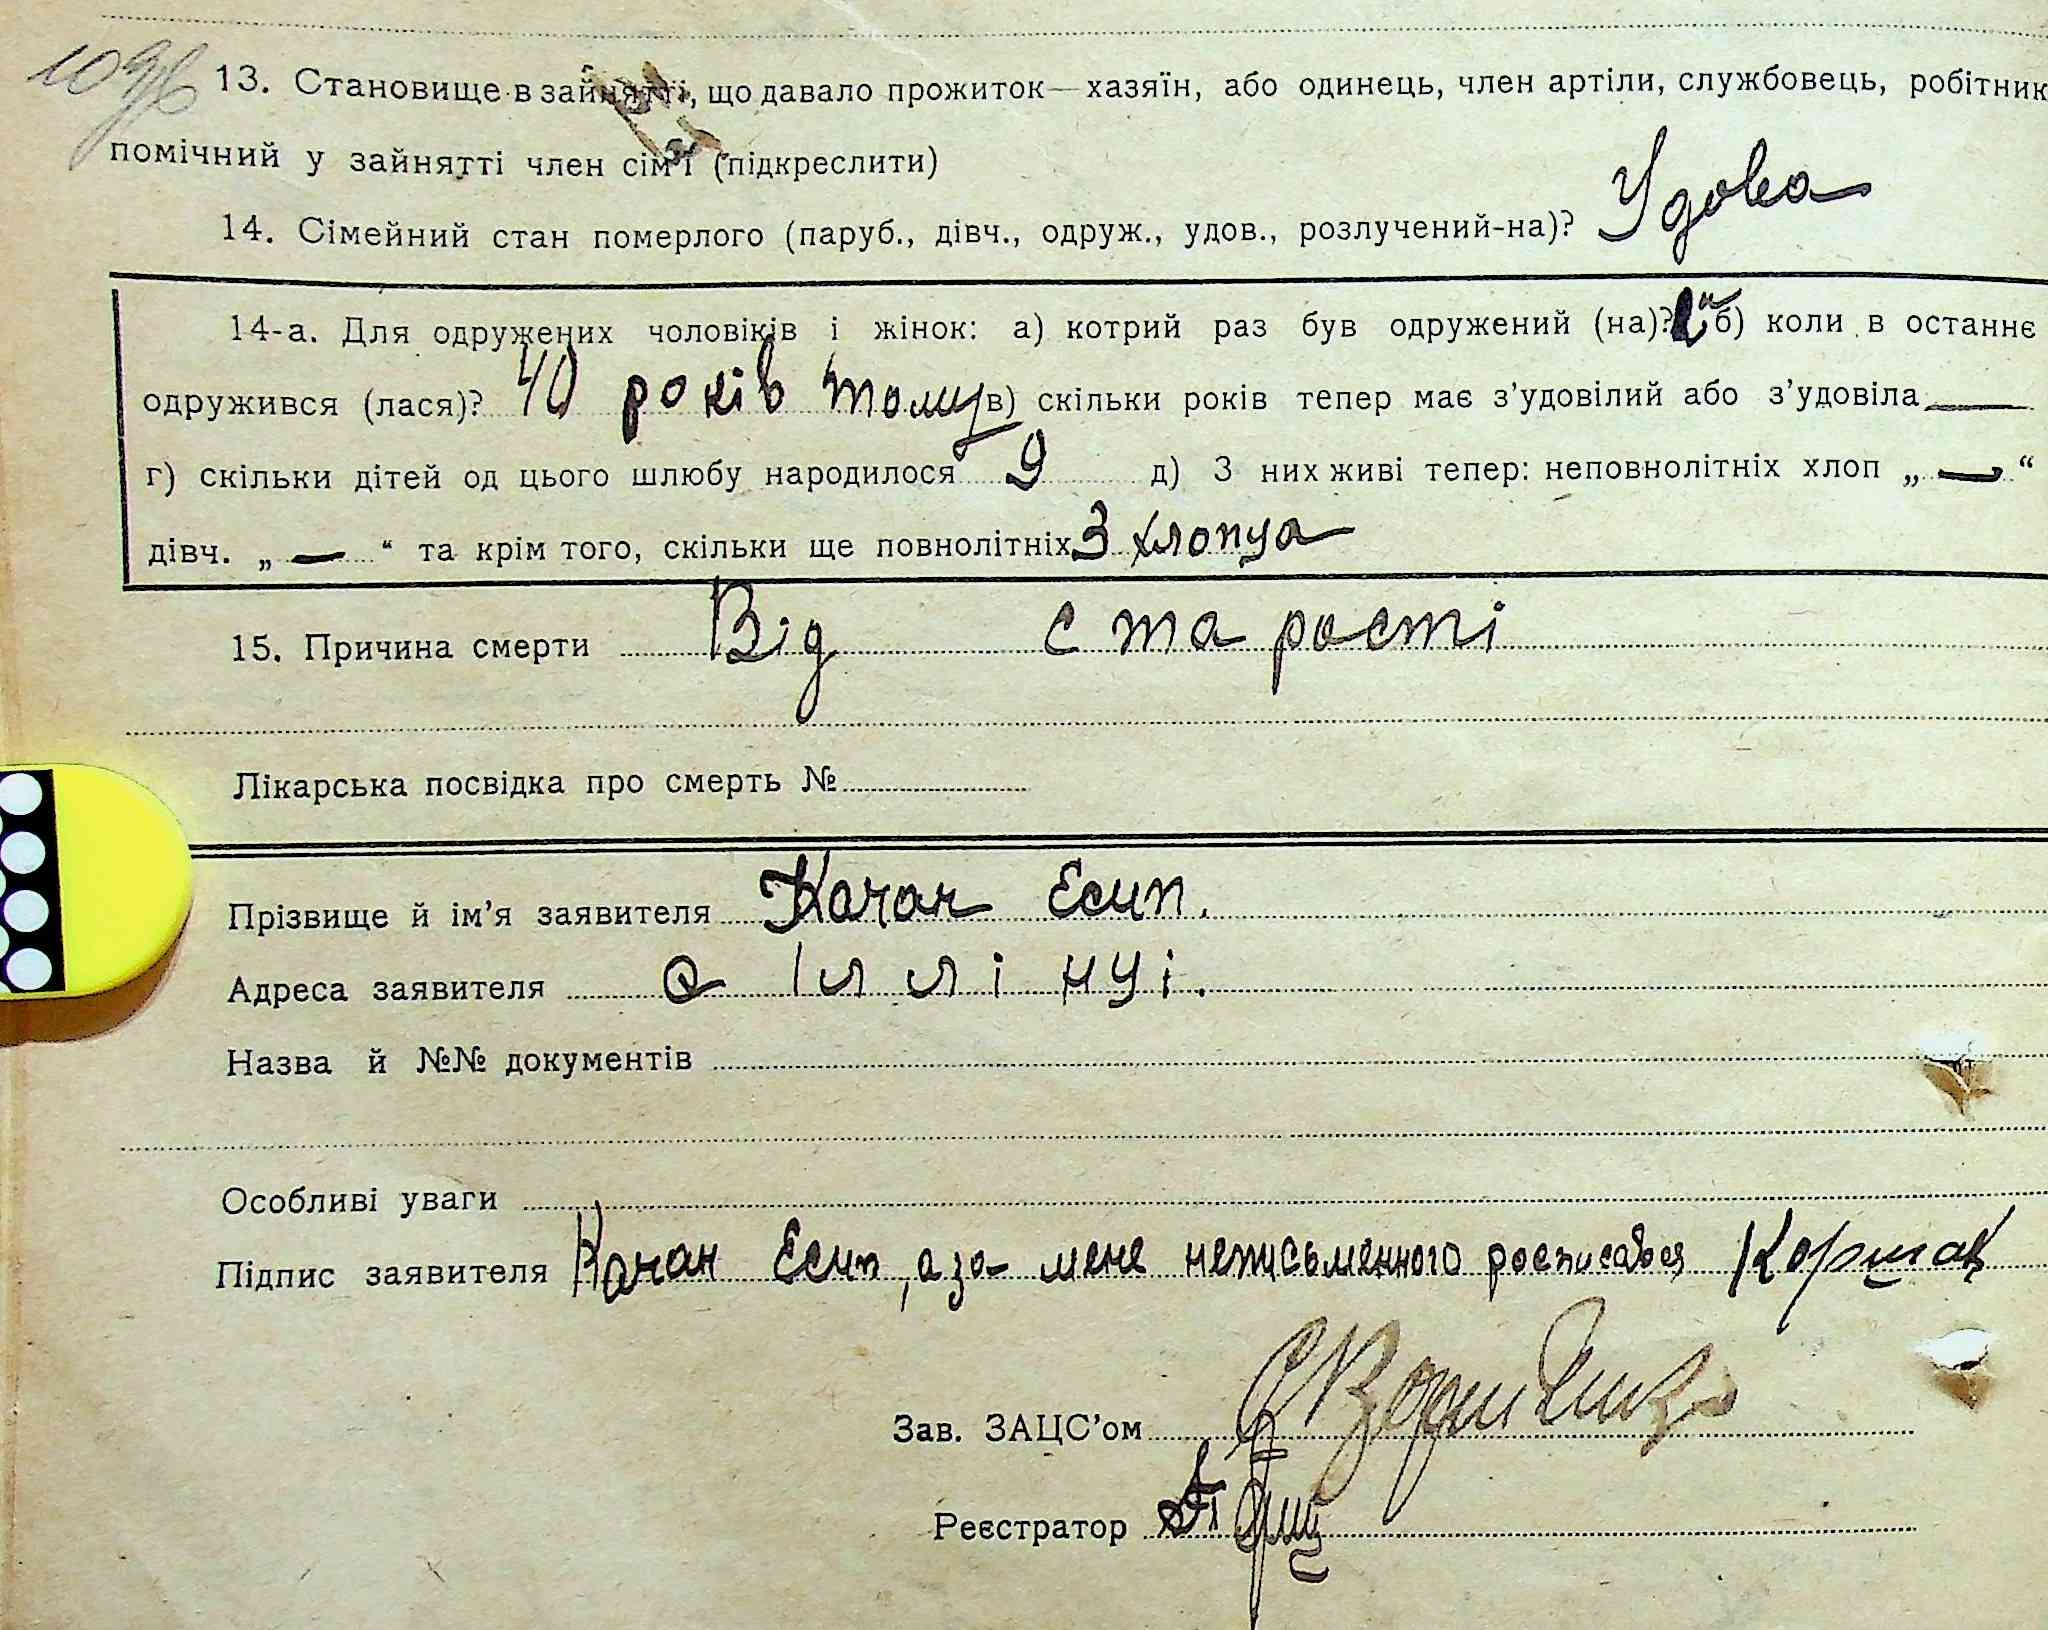 13. Становище в зайнятті, що давало прожиток—хазяїн, або одинець, член артіли, службовець, робітник
помічний у зайнятті член сім'ї (підкреслити)
14. Сімейний стан померлого (паруб., дівч., одруж., удов., розлучений-на)? Удова
14-а. Для одружених чоловіків і жінок: а) котрий раз був одружений (на)? б) коли в останнє
одружився (лася)? 40 років тому в) скільки років тепер має з'удовілий або з'удовіла —
г) скільки дітей од цього шлюбу народилося 9 д) З них живі тепер: неповнолітніх хлоп „ — “
дівч. „ — “ та крім того, скільки ще повнолітніх 3 хлопца
15. Причина смерти Від старості
Лікарська посвідка про смерть №
Прізвище й ім'я заявителя Качан Єсип.
Адреса заявителя с Іллінці.
Назва й №№ документів
Особливі уваги
Підпис заявителя Качан Єсип, а за мене неписьменного росписався Коршак
Зав. ЗАЦС'ом
Реєстратор